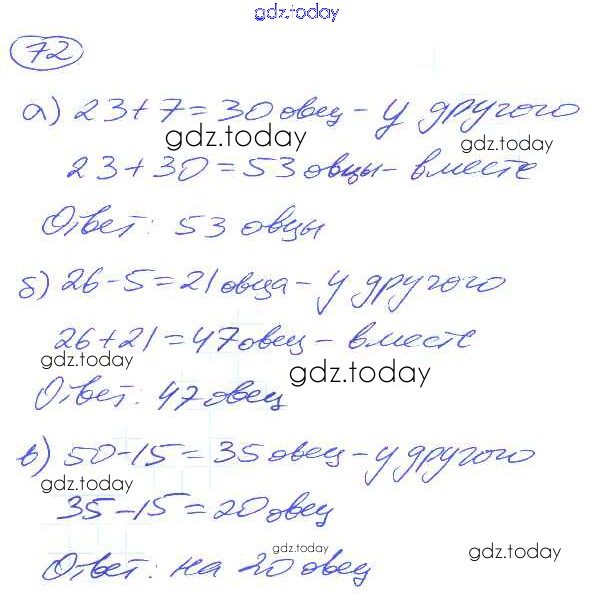 gdz.today
72
а) 23+7=30 овец - у другого
gdz.today
gdz.today
23+30=53 овцы - вместе
Ответ: 53 овцы
б) 26-5=21 овца - у другого
26+21=47 овец - вместе
gdz.today
gdz.today
Ответ: 47 овец
в) 50-15=35 овец - у другого
gdz.today
35-15=20 овец
gdz.today
gdz.today
Ответ: на 20 овец